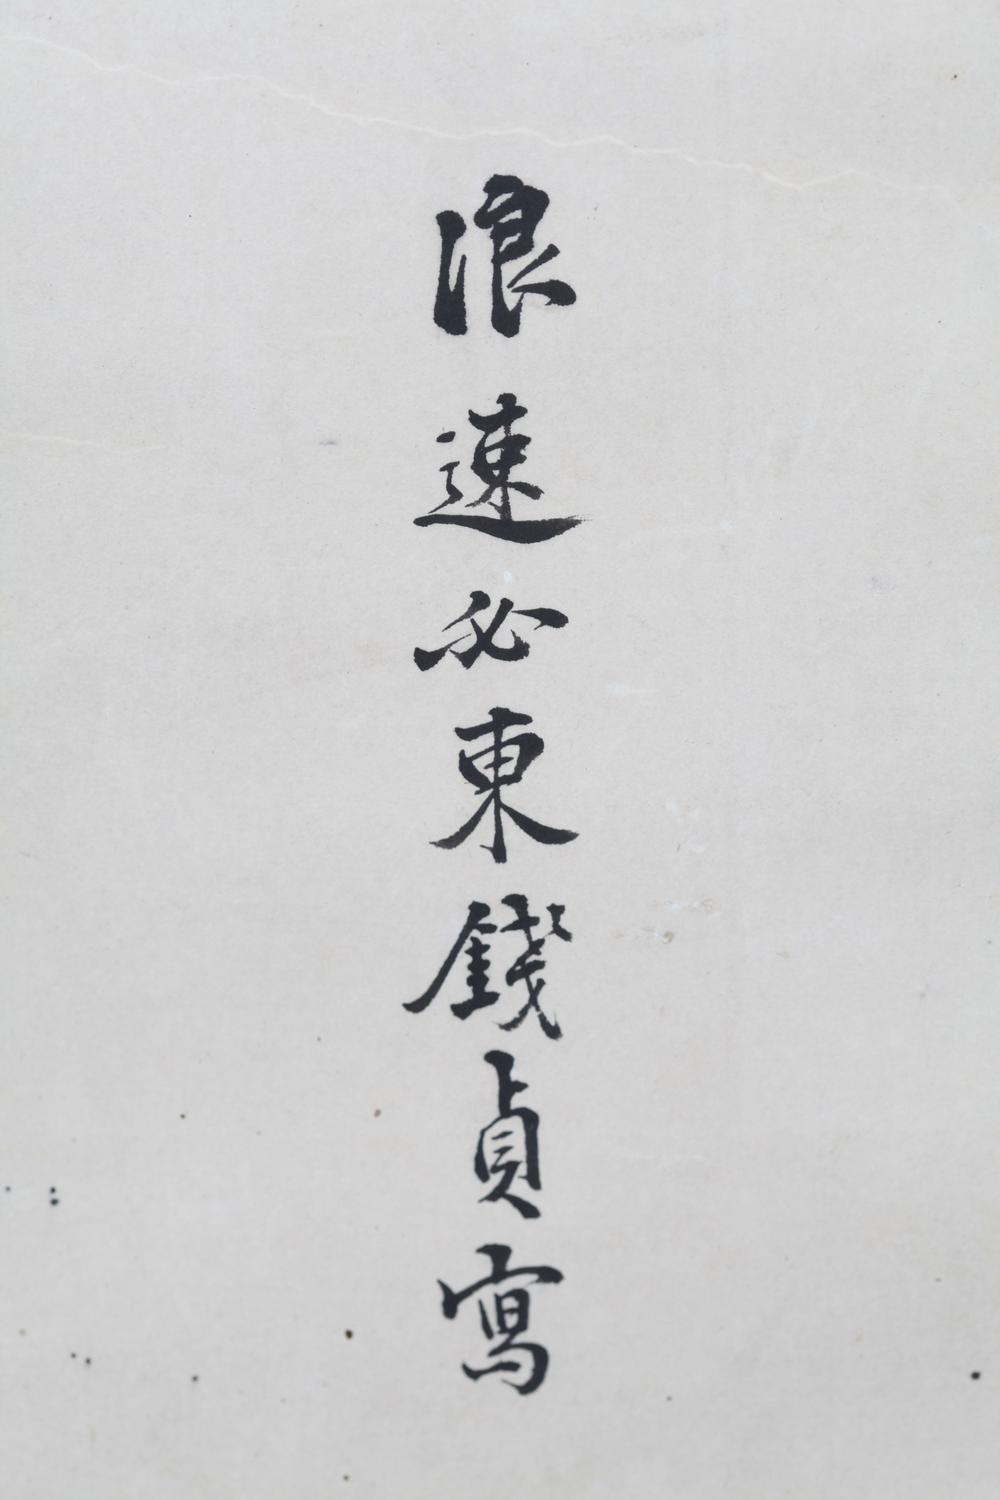 浪速必東錢貞寫